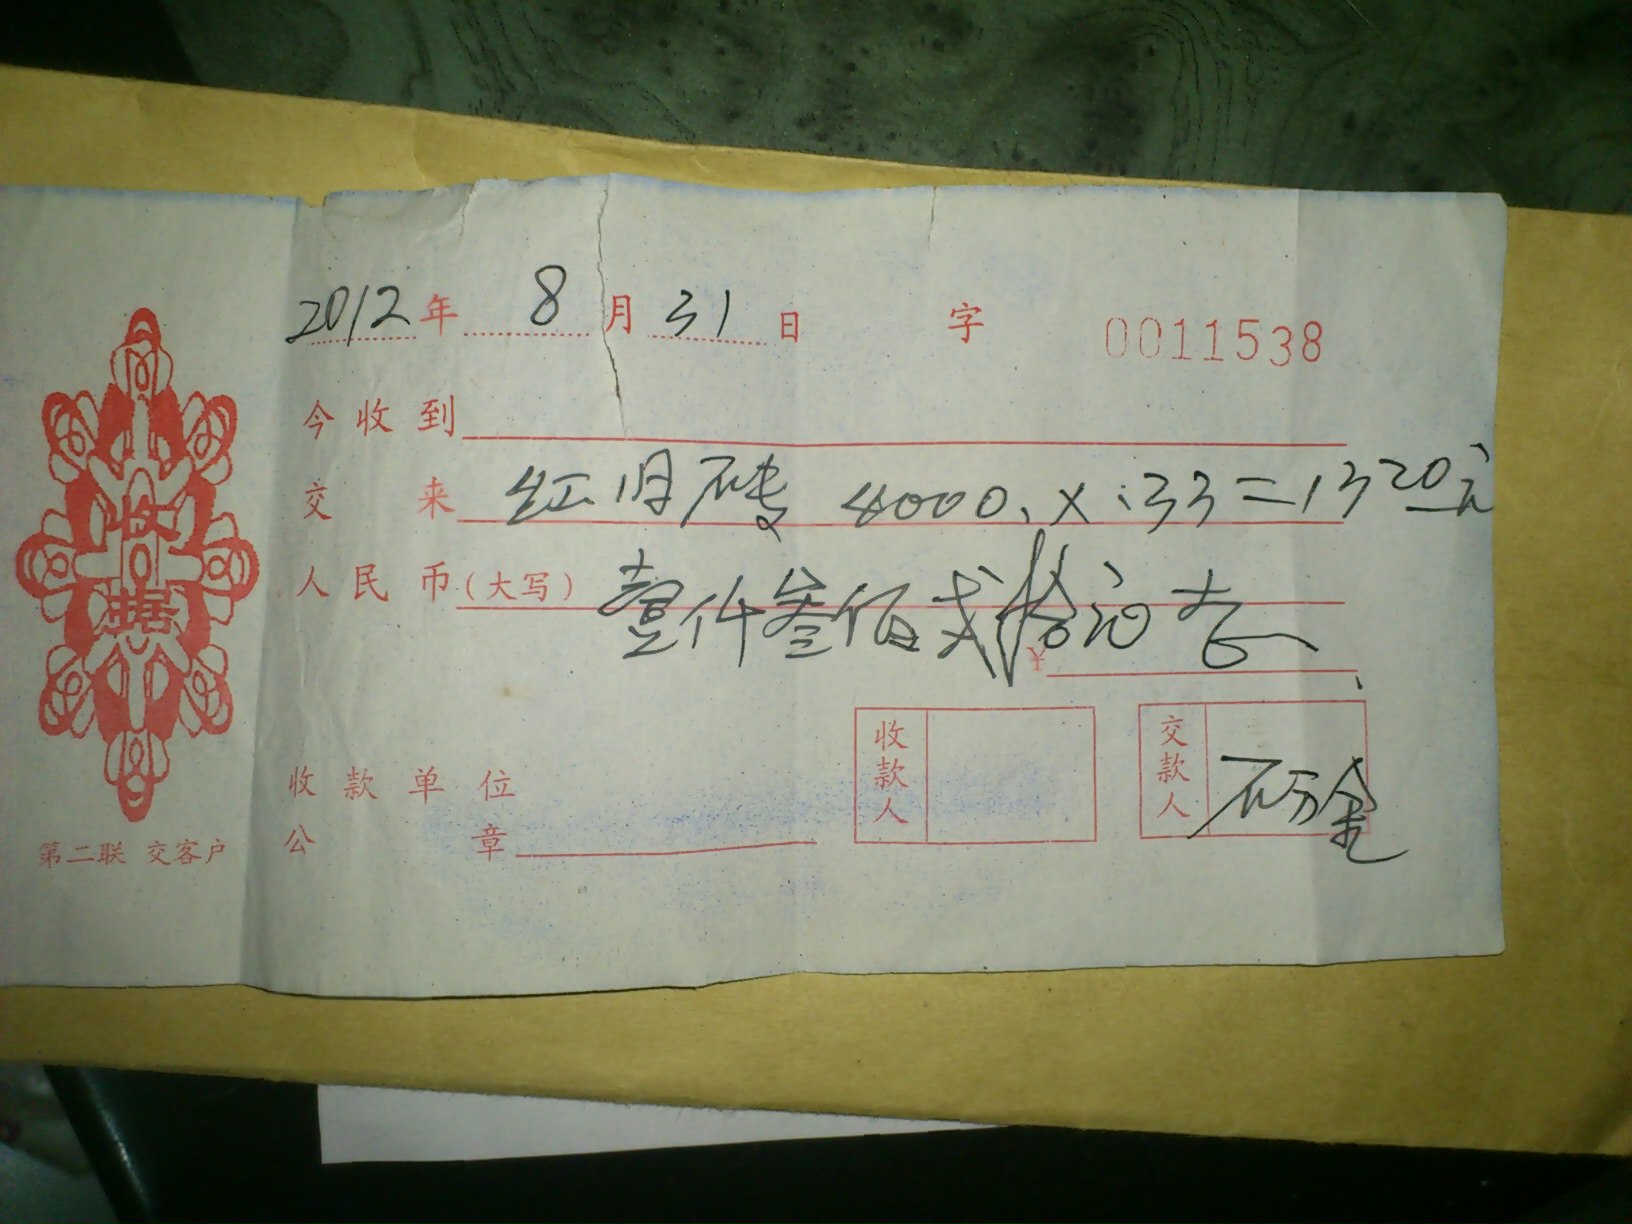 2012年 8月31日 字 0011538
今收到
交来 红旧砖 4000.×.33=1320元
人民币(大写) 壹仟叁佰贰拾元
¥
收款人
交款人
收款单位
公章
收据
第二联 交客户